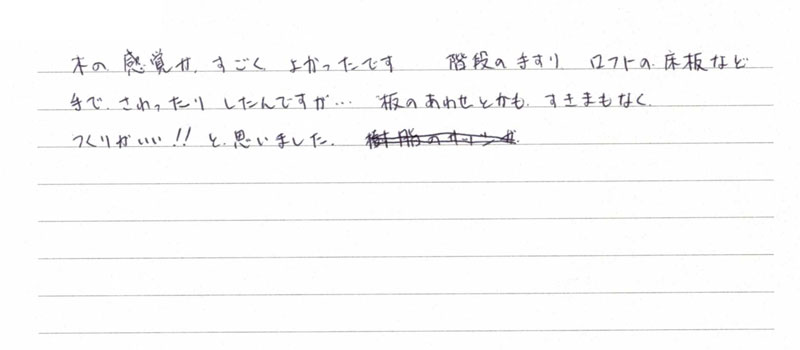 木の感覚が、すごく よかったです 階段の手すり ロフトの床板など
手で、さわったり したんですが… 板のあわせとかも、すきまもなく、
つくりがいい!! と、思いました。